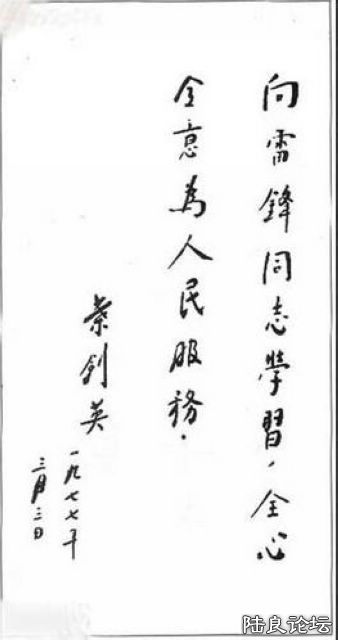 向雷鋒同志學習，全心
全意為人民服務．
葉劍英
一九七七年
三月三日
陆良论坛